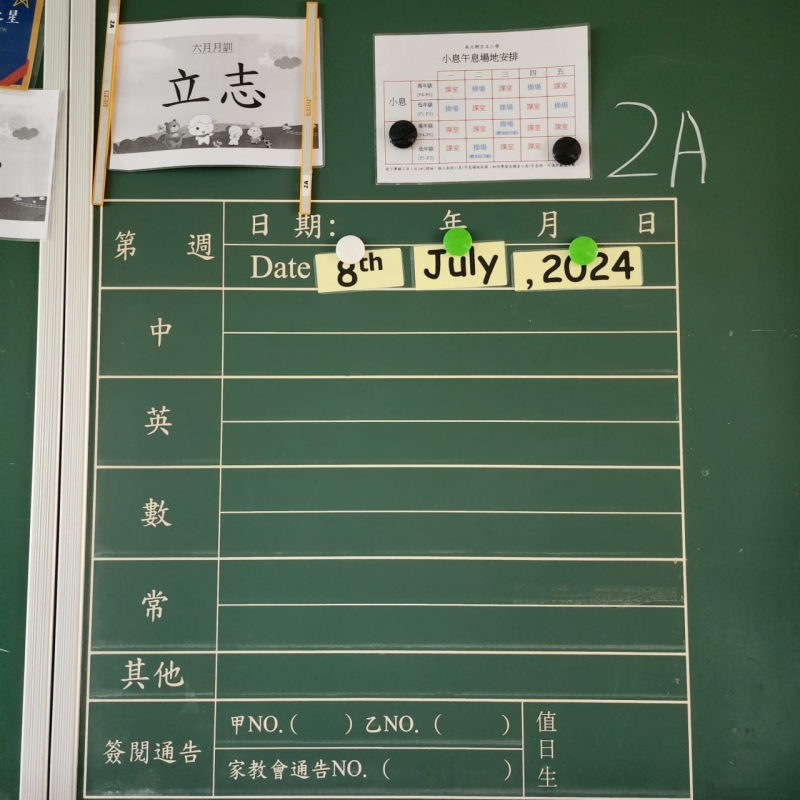 星
2A
六月月訓
立志
2A
小息午息場地安排
一 二 三 四 五
小息
高年級 課室 操場 課室 操場 課室
低年級 操場 操場 課室 課室 操場
課室 課室 操場 課室
低年級 課室 操場 課室 課室
2A
第 週
日 期: 年 月 日
Date 8th July , 2024
中
英
數
常
其他
簽閱通告
甲NO. ( ) 乙NO. ( )
家教會通告NO. ( )
值日生